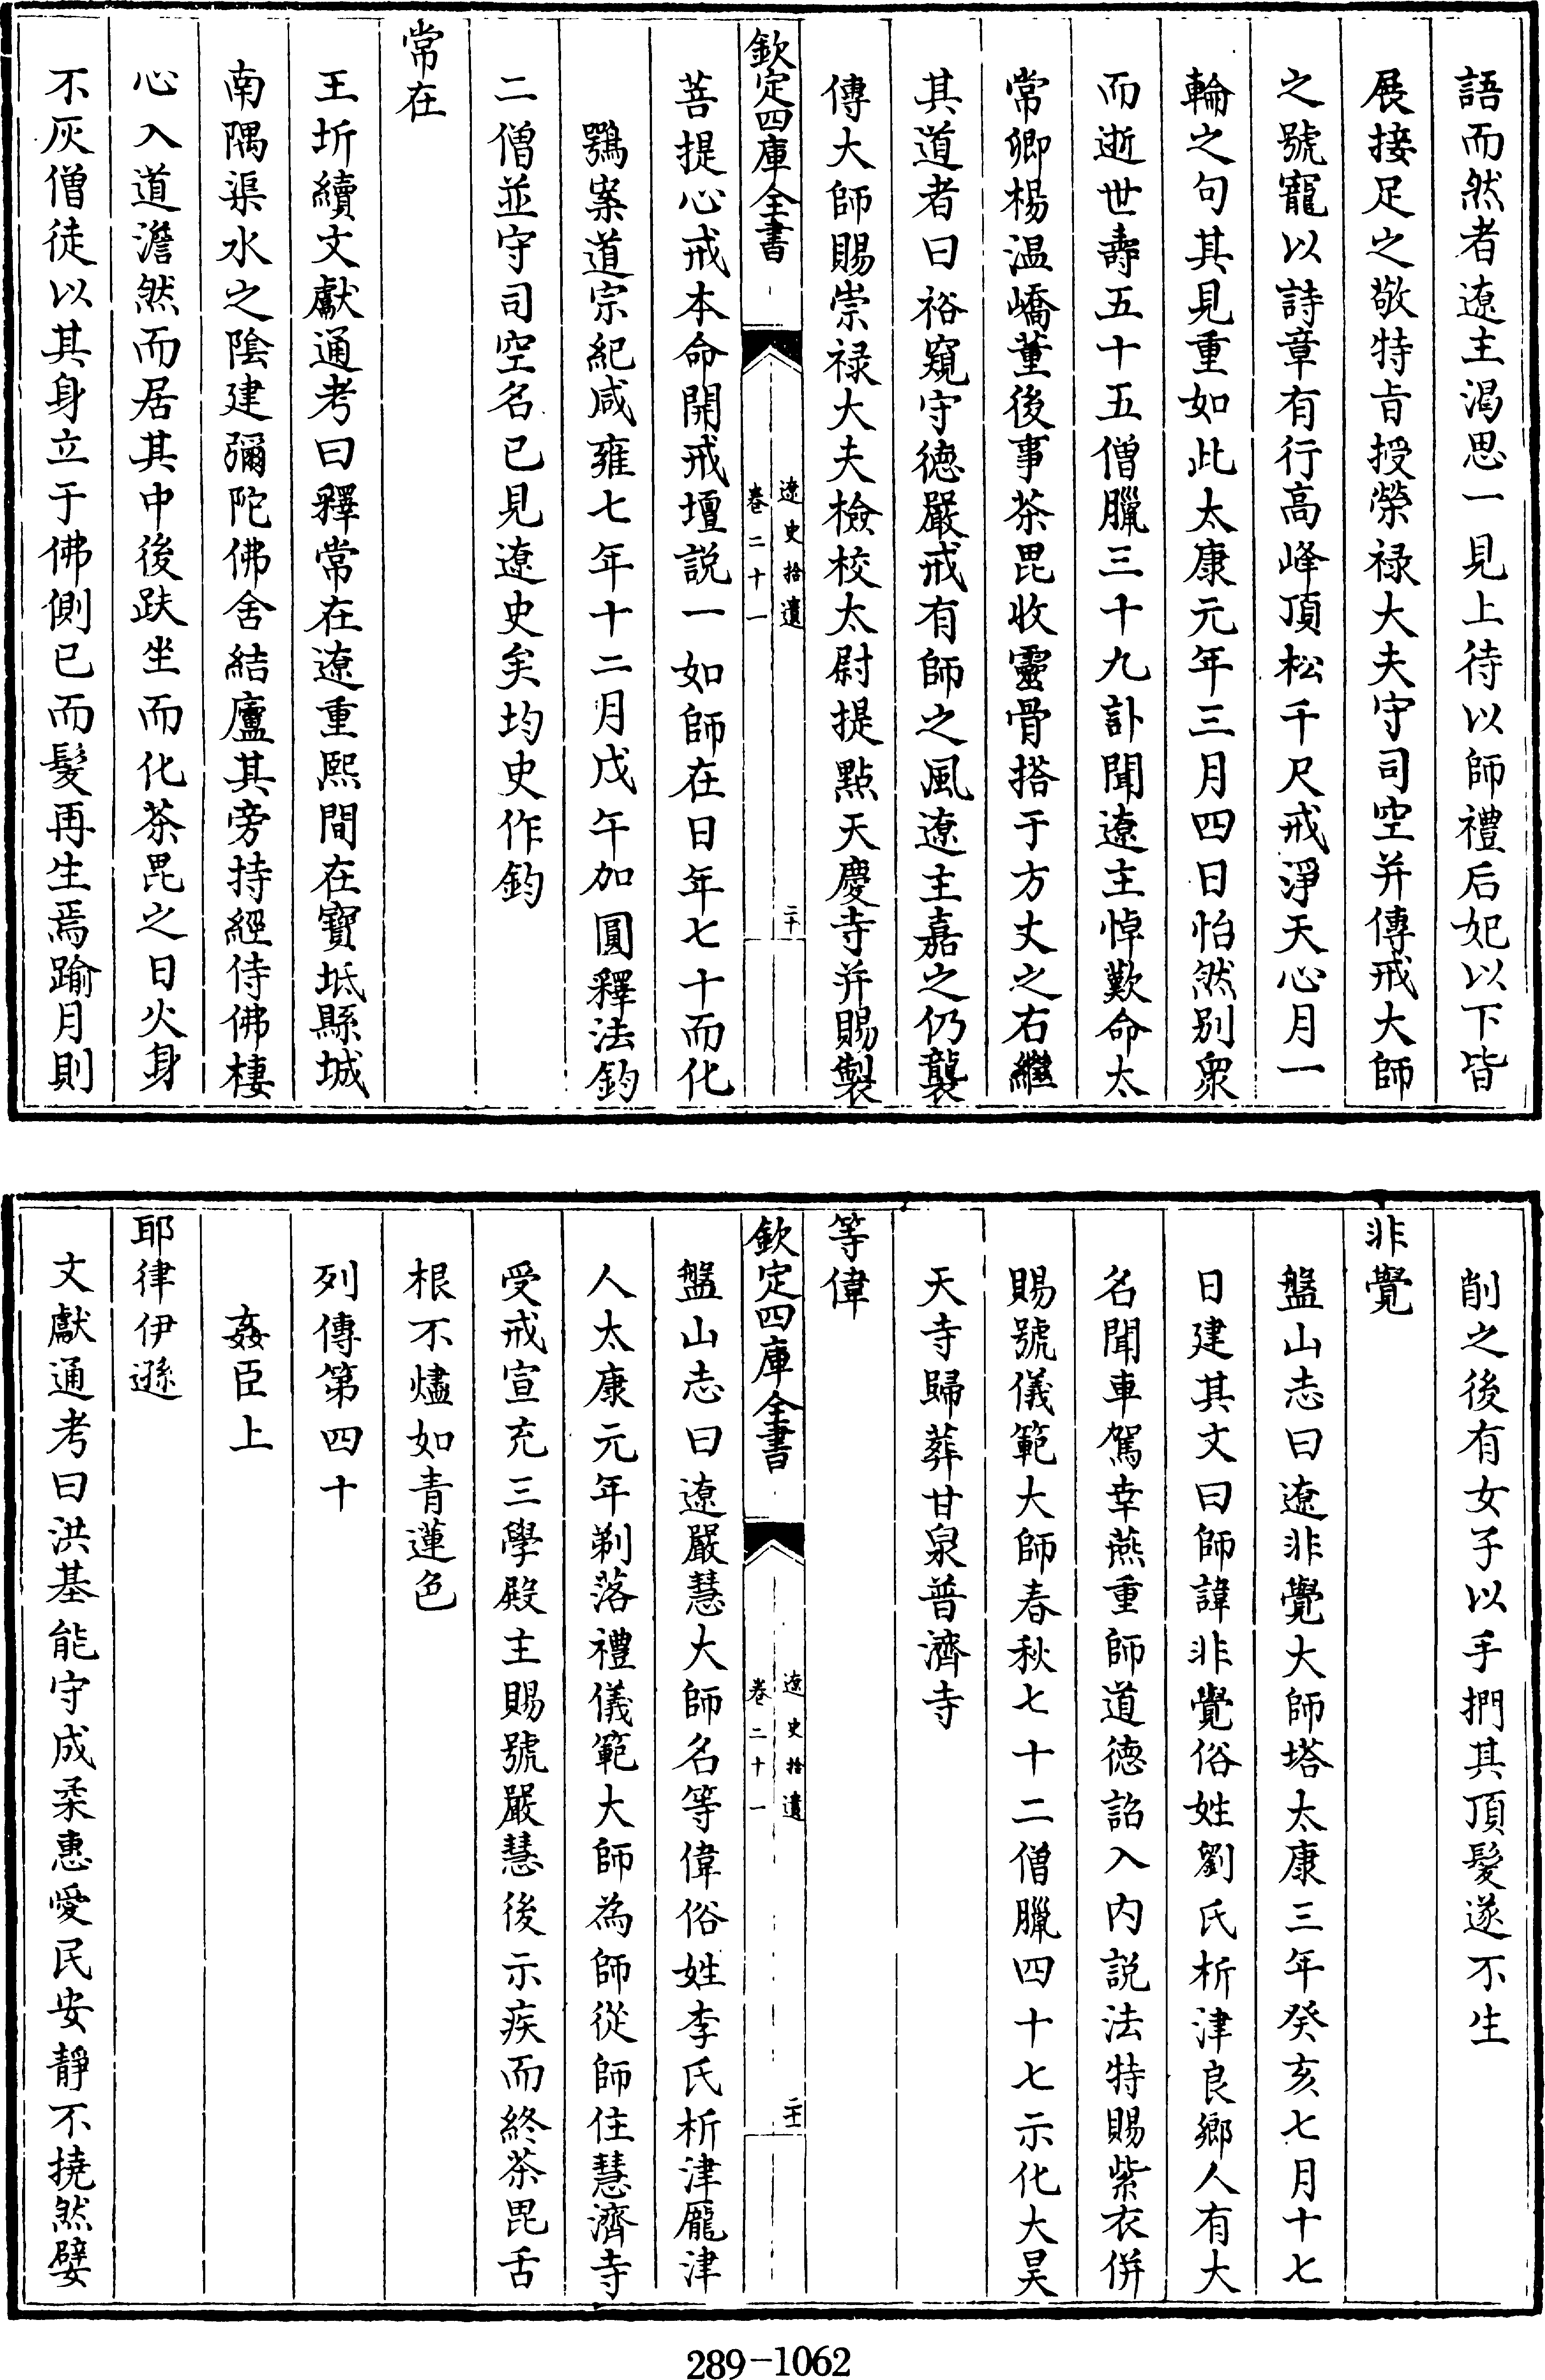 語而然者遼主渴思一見上待以師禮后妃以下皆
展接足之敬特旨授榮禄大夫守司空并傳戒大師
之號寵以詩章有行高峰頂松千尺戒淨天心月一
輪之句其見重如此太康元年三月四日怡然别衆
而逝世壽五十五僧臘三十九訃聞遼主悼歎命太
常卿楊温嶠董後事茶毘收靈骨搭于方丈之右繼
其道者曰裕窺守德嚴戒有師之風遼主嘉之仍襲
傳大師賜崇禄大夫檢校太尉提點天慶寺并賜製
欽定四庫全書
遼史拾遺
卷二十一
二十
菩提心戒本命開戒壇説一如師在日年七十而化
鶚案道宗紀咸雍七年十二月戊午加圓釋法鈞
二僧並守司空名已見遼史矣均史作鈞
常在
王圻續文獻通考曰釋常在遼重熙間在寶坻縣城
南隅渠水之隂建彌陀佛舍結廬其旁持經侍佛棲
心入道澹然而居其中後趺坐而化茶毘之日火身
不灰僧徒以其身立于佛側已而髮再生焉踰月則
削之後有女子以手捫其頂髮遂不生
非覺
盤山志曰遼非覺大師塔太康三年癸亥七月十七
日建其文曰師諱非覺俗姓劉氏析津良鄉人有大
名聞車駕幸燕重師道德詔入内説法特賜紫衣併
賜號儀範大師春秋七十二僧臘四十七示化大昊
天寺歸葬甘泉普濟寺
等偉
欽定四庫全書
遼史拾遺
卷二十一
二十一
盤山志曰遼嚴慧大師名等偉俗姓李氏析津龎津
人太康元年剃落禮儀範大師為師從師住慧濟寺
受戒宣充三學殿主賜號嚴慧後示疾而終茶毘舌
根不燼如青蓮色
列傳第四十
姦臣上
耶律伊遜
文獻通考曰洪基能守成柔惠愛民安靜不撓然嬖
289-1062